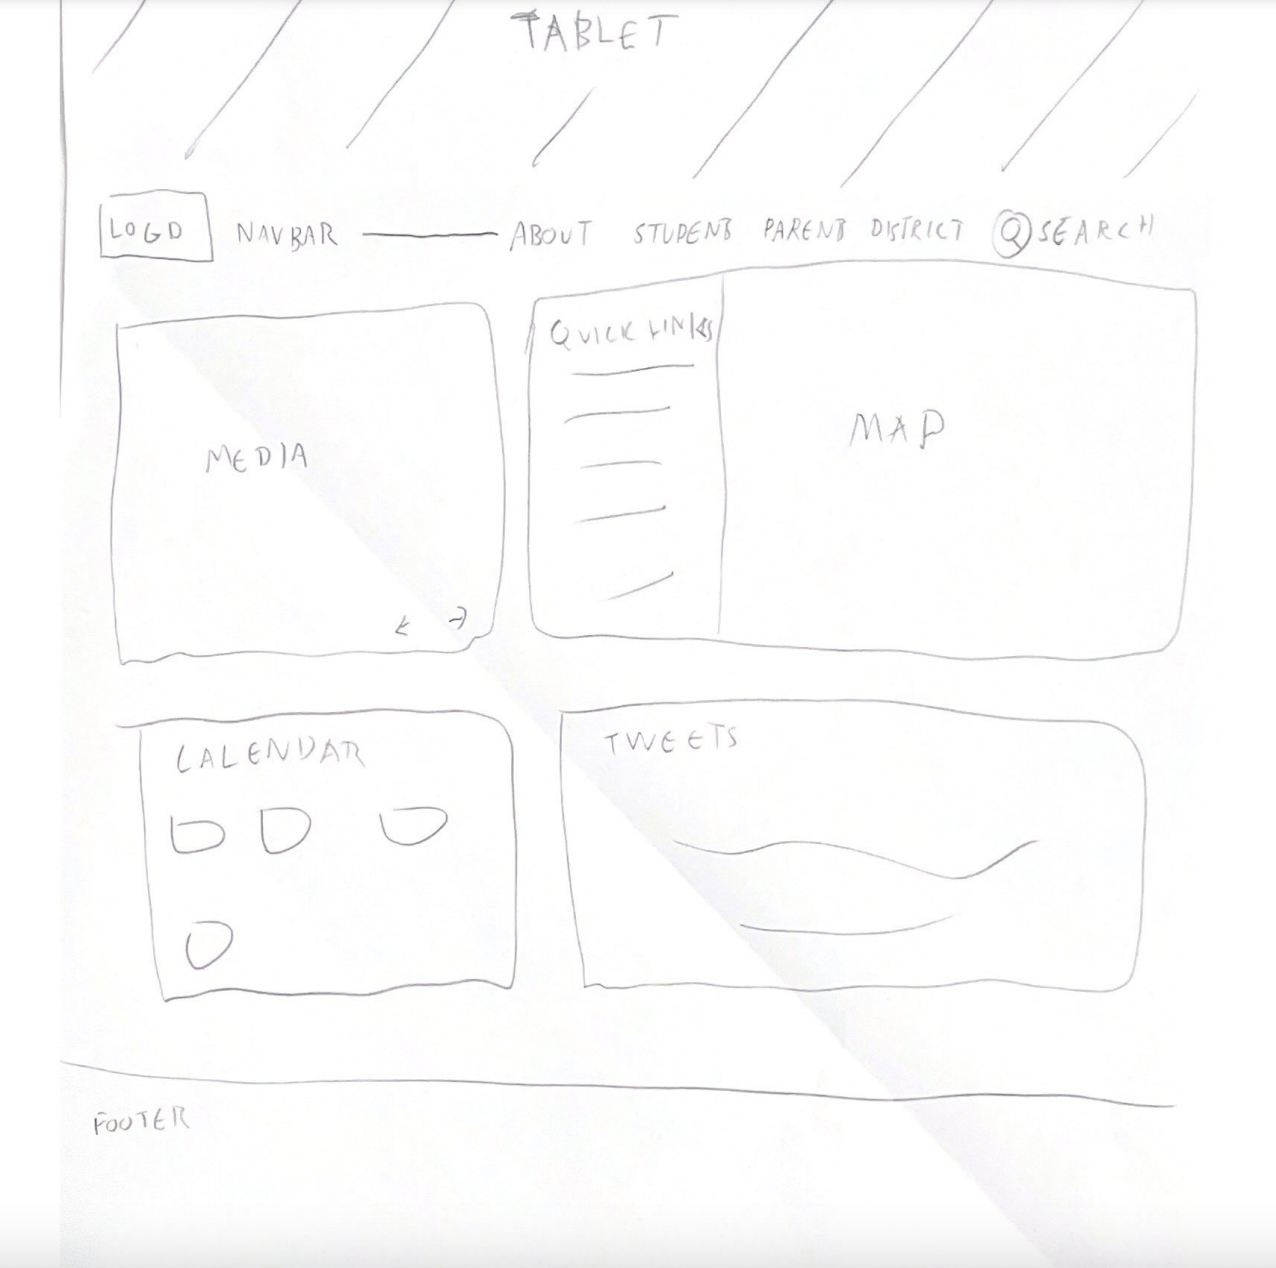 TABLET
LOGO NAVBAR ABOUT STUDENT PARENT DISTRICT SEARCH
QUICK LINKS
MEDIA
MAP
CALENDAR
TWEETS
FOOTER